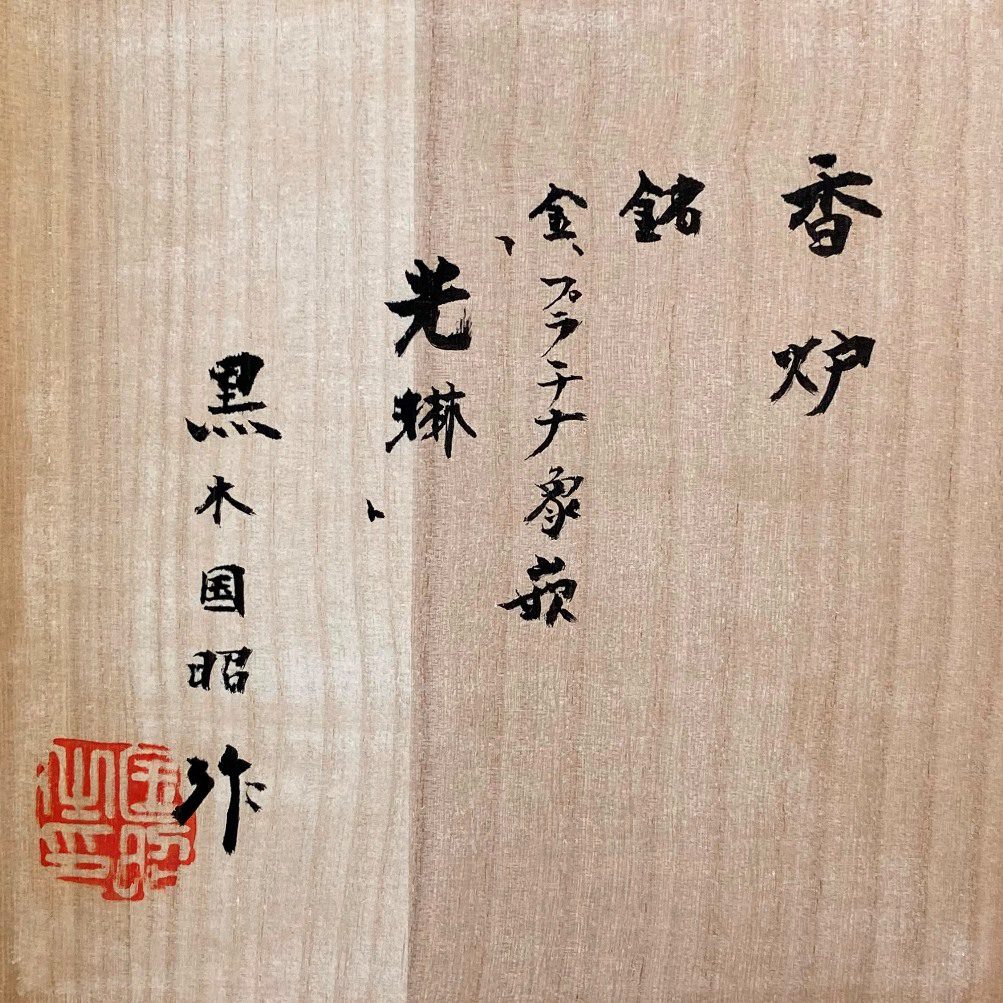 香炉
銘
金、プラチナ象嵌
「光琳」
黒木国昭作